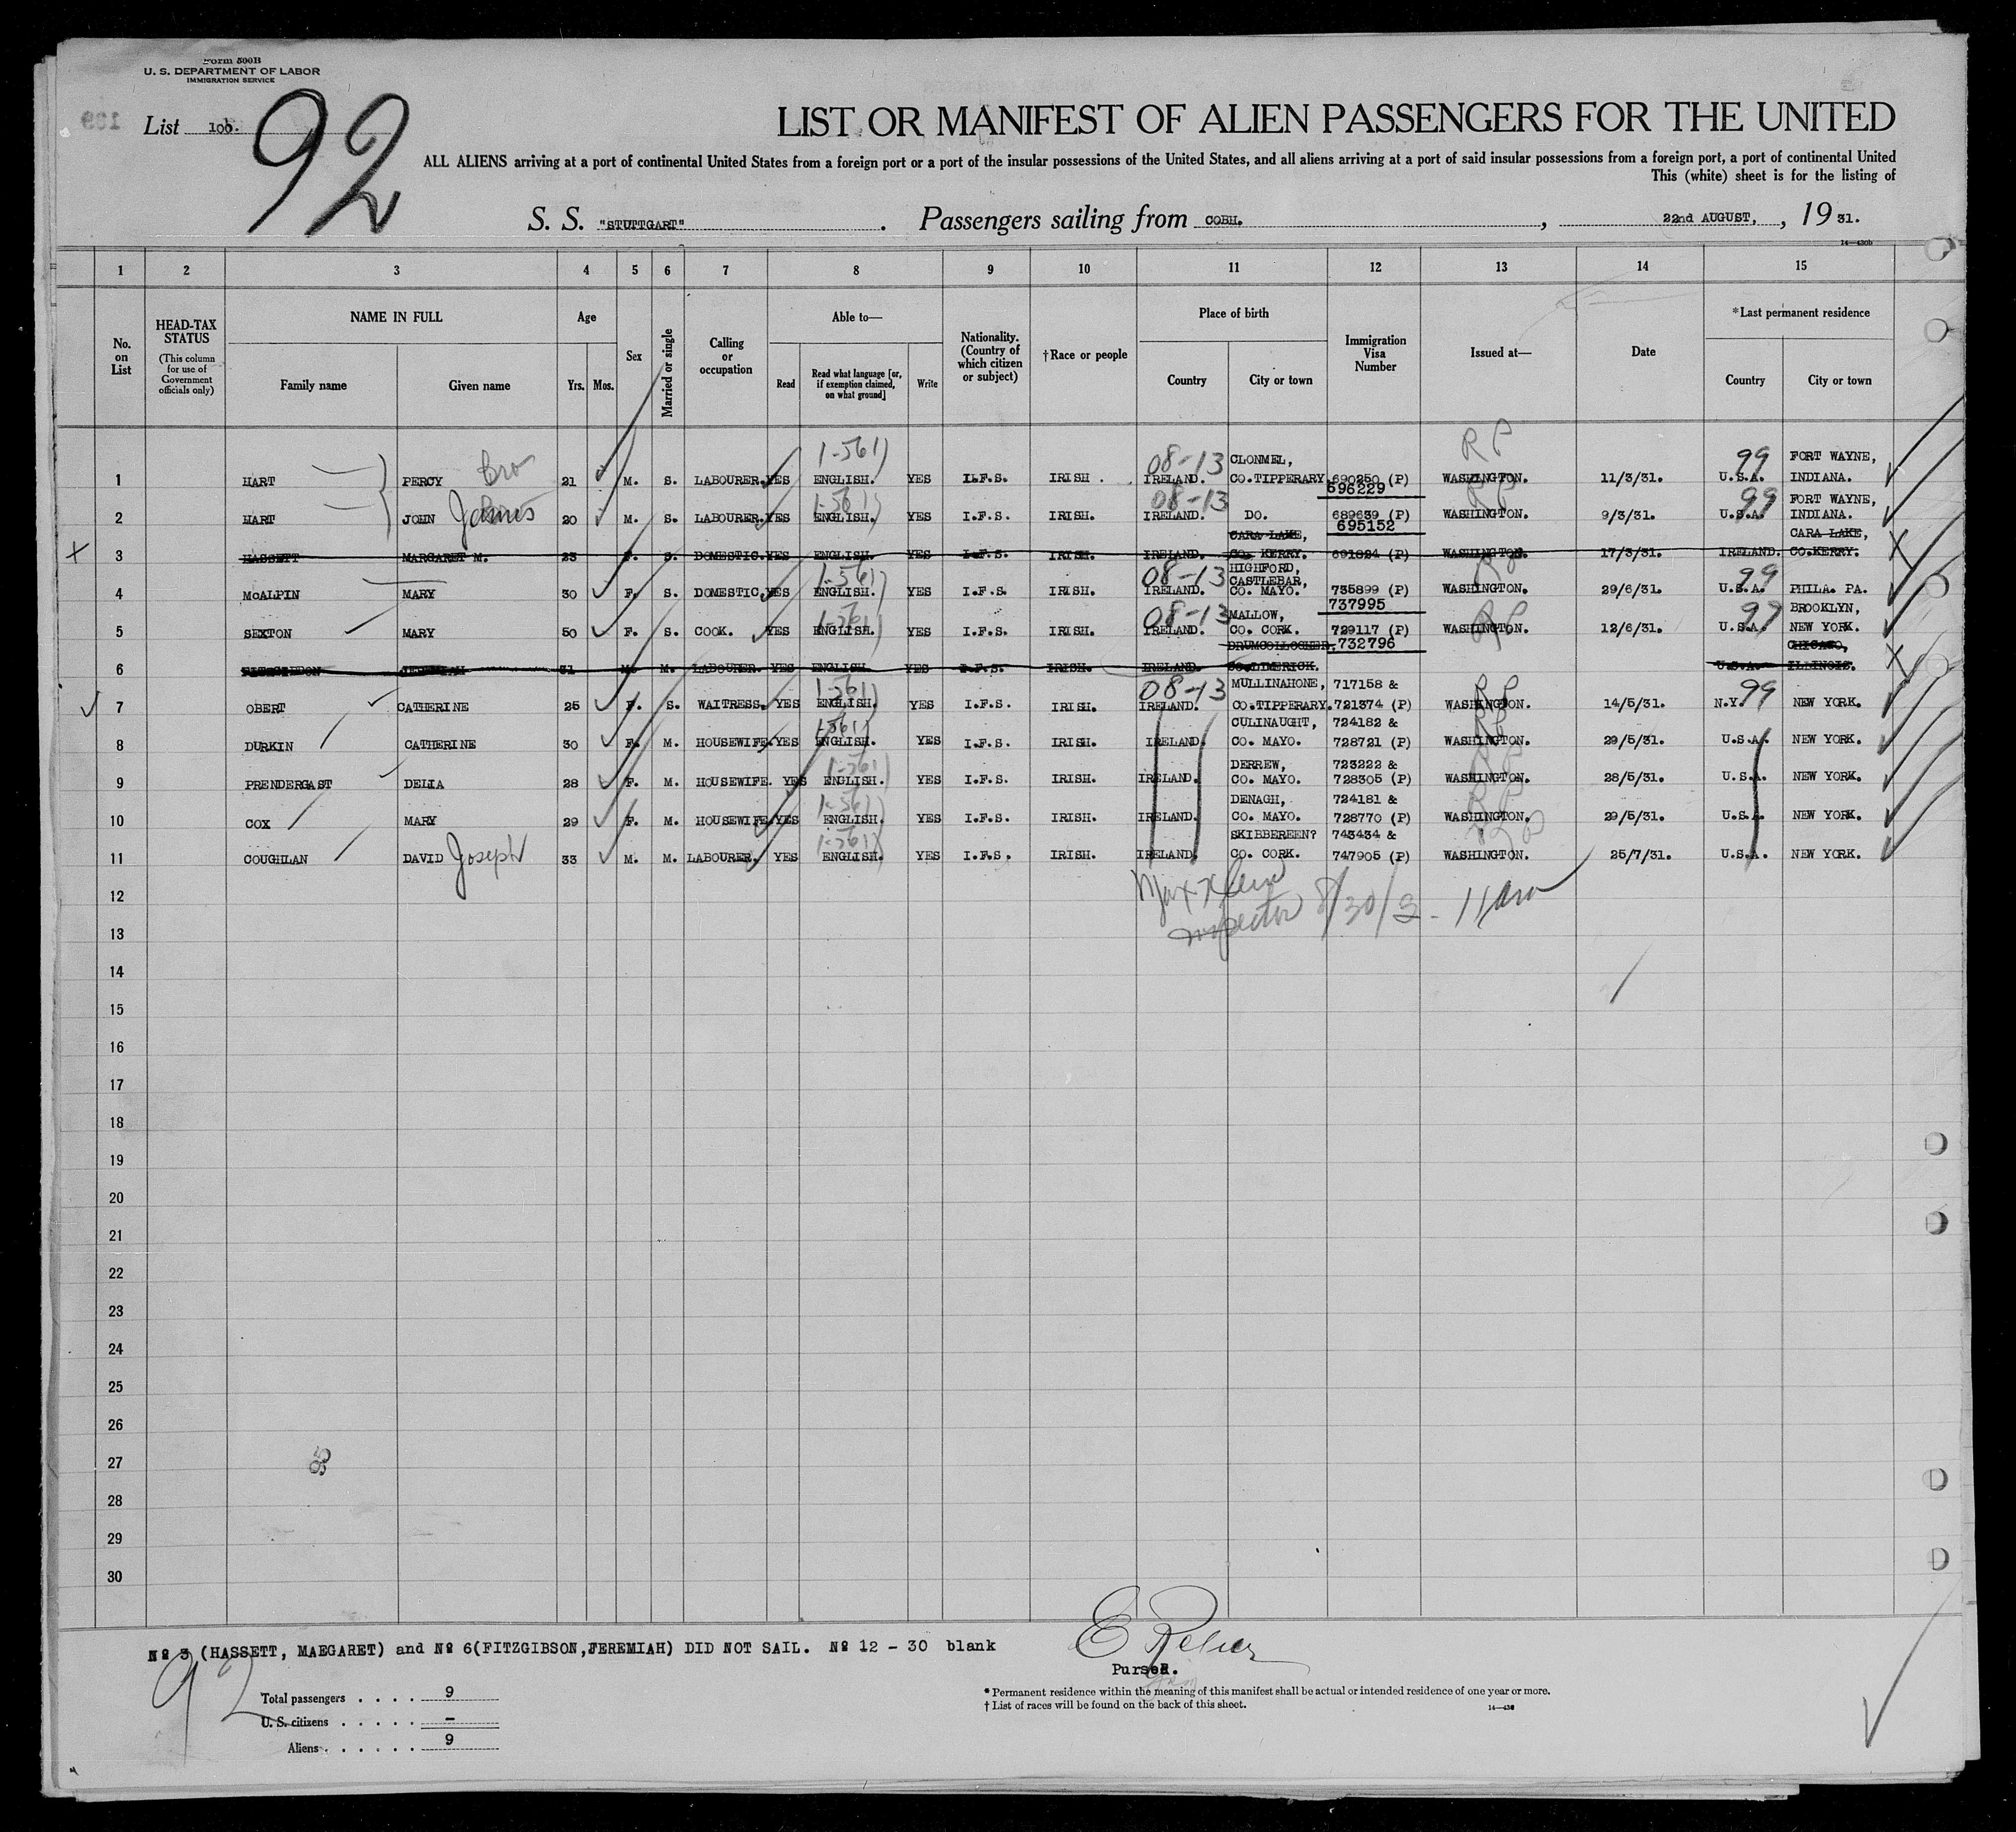 Form 500B
U. S. DEPARTMENT OF LABOR
IMMIGRATION SERVICE
List 10b.
92
LIST OR MANIFEST OF ALIEN PASSENGERS FOR THE UNITED
ALL ALIENS arriving at a port of continental United States from a foreign port or a port of the insular possessions of the United States, and all aliens arriving at a port of said insular possessions from a foreign port, a port of continental United
This (white) sheet is for the listing of
S. S. "STUTTGART" . Passengers sailing from COBH. , 22nd AUGUST, , 19 31.
14—430b
1 2 3 4 5 6 7 8 9 10 11 12 13 14 15
No. on List
HEAD-TAX STATUS (This column for use of Government officials only)
NAME IN FULL
Family name Given name
Age
Yrs. Mos.
Sex
Married or single
Calling or occupation
Able to—
Read
Read what language [or, if exemption claimed, on what ground]
Write
Nationality. (Country of which citizen or subject)
†Race or people
Place of birth
Country City or town
Immigration Visa Number
Issued at—
Date
*Last permanent residence
Country City or town
1-561) 08-13 CLONMEL, R P 99 FORT WAYNE,
1 HART PERCY bro 21 M. S. LABOURER. YES ENGLISH. YES I.F.S. IRISH . IRELAND. CO.TIPPERARY. 690250 (P) WASHINGTON. 11/3/31. U.S.A. INDIANA.
1-561) 08-13 596229 99 FORT WAYNE,
2 HART JOHN James 20 M. S. LABOURER. YES ENGLISH. YES I.F.S. IRISH. IRELAND. DO. 689639 (P) WASHINGTON. 9/3/31. U.S.A. INDIANA.
CARA LAKE, 695152 CARA LAKE,
3 HASSETT MARGARET M. 23 F. S. DOMESTIC. YES ENGLISH. YES I.F.S. IRISH. IRELAND. CO. KERRY. 691824 (P) WASHINGTON. 17/3/31. IRELAND. CO.KERRY.
HIGHFORD,
1-561) 08-13 CASTLEBAR, 99
4 McALPIN MARY 30 F. S. DOMESTIC. YES ENGLISH. YES I.F.S. IRISH. IRELAND. CO. MAYO. 735899 (P) WASHINGTON. 29/6/31. U.S.A. PHILA. PA.
1-561) 08-13 MALLOW, 737995 R P 99 BROOKLYN,
5 SEXTON MARY 50 F. S. COOK. YES ENGLISH. YES I.F.S. IRISH. IRELAND. CO. CORK. 729117 (P) WASHINGTON. 12/6/31. U.S.A. NEW YORK.
DRUMCOLLOGHER. 732796 CHICAGO,
6 FITZGIBBON JEREMIAH 31 M. M. LABOURER. YES ENGLISH YES I.F.S. IRISH. IRELAND. CO.LIMERICK. U.S.A. ILLINOIS.
1-561) 08-13 MULLINAHONE, 717158 & R P 99
7 OBERT CATHERINE 25 F. S. WAITRESS. YES ENGLISH. YES I.F.S. IRISH. IRELAND. CO.TIPPERARY. 721374 (P) WASHINGTON. 14/5/31. N.Y. NEW YORK.
1-561) CULINAUGHT, 724182 &
8 DURKIN CATHERINE 30 F. M. HOUSEWIFE. YES ENGLISH. YES I.F.S. IRISH. IRELAND. CO. MAYO. 728721 (P) WASHINGTON. 29/5/31. U.S.A. NEW YORK.
1-561) DERREW, 723222 &
9 PRENDERGAST DELIA 28 F. M. HOUSEWIFE. YES ENGLISH. YES I.F.S. IRISH. IRELAND. CO. MAYO. 728305 (P) WASHINGTON. 28/5/31. U.S.A. NEW YORK.
1-561) DENAGH, 724181 &
10 COX MARY 29 F. M. HOUSEWIFE. YES ENGLISH. YES I.F.S. IRISH. IRELAND. CO. MAYO. 728770 (P) WASHINGTON. 29/5/31. U.S.A. NEW YORK.
1-561) SKIBBEREEN? 743434 &
11 COUGHLAN DAVID Joseph 33 M. M. LABOURER. YES ENGLISH. YES I.F.S. IRISH. IRELAND. CO. CORK. 747905 (P) WASHINGTON. 25/7/31. U.S.A. NEW YORK.
12
Inspector 8/30/3-
13
14
15
16
17
18
19
20
21
22
23
24
25
26
27
28
29
30
№ 3 (HASSETT, MAEGARET) and № 6(FITZGIBSON,JEREMIAH) DID NOT SAIL. № 12 - 30 blank
Purser.
92
Total passengers . . . . 9
U. S. citizens . . . . . –
Aliens . . . . . . 9
* Permanent residence within the meaning of this manifest shall be actual or intended residence of one year or more.
† List of races will be found on the back of this sheet.
14—430